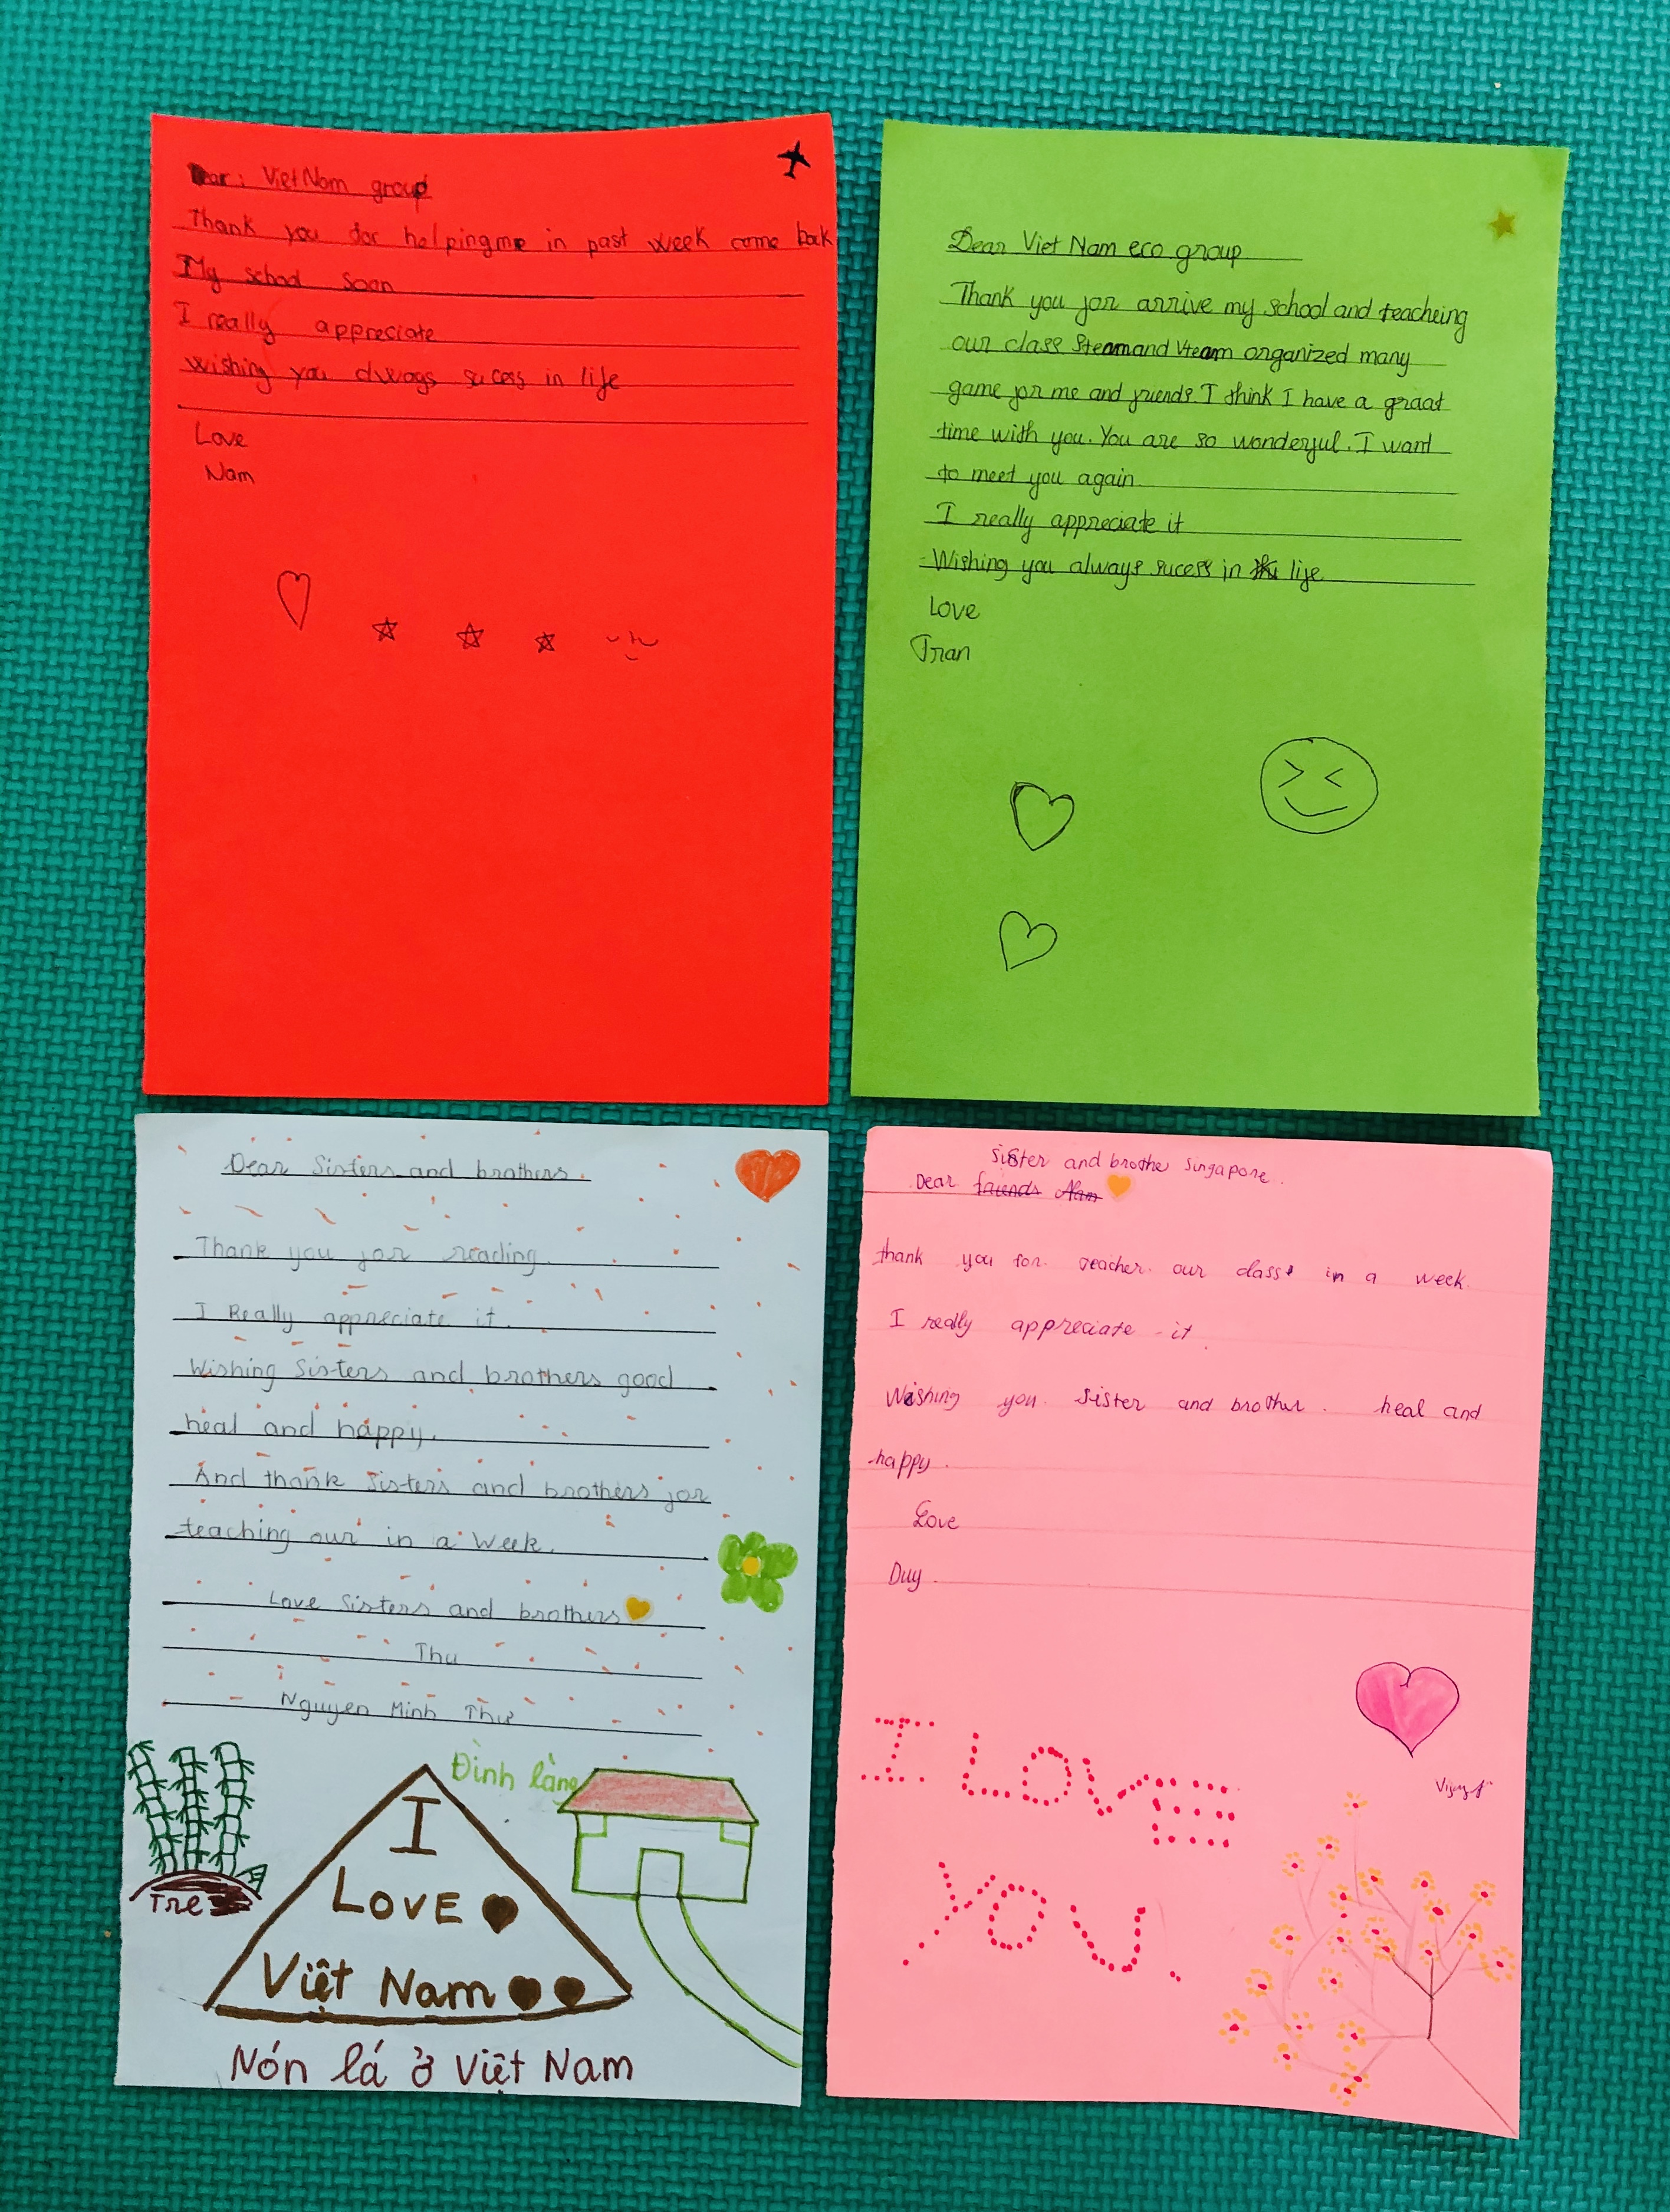 Dear: Viet Nom group
Thank you for helping me in past week come back
My school soon
I really appreciate
wishing you always sucess in life
Love
Nam
Dear Viet Nam eco group
Thank you for arrive my school and teacheing
our class Steam and Vteam organized many
game for me and friends. I think I have a graat
time with you. You are so wonderful. I want
to meet you again
I really appreciate it
Wishing you always sucess in life
Love
Tran
Dear Sisters and brothers.
Thank you for reading.
I Really appreciate it.
Wishing Sisters and brothers good
heal and happy.
And thank Sisters and brothers for
teaching our in a Week.
Love Sisters and brothers
Thu
Nguyen Minh Thư
Tre
Đình làng
I
LOVE
Việt Nam
Nón lá ở Việt Nam
Sister and brothe Singapore.
Dear friends Nam
thank you for teacher our class in a week
I really appreciate it.
Wishing you sister and brother. heal and
happy.
Love
Duy.
I LOVE
YOU.